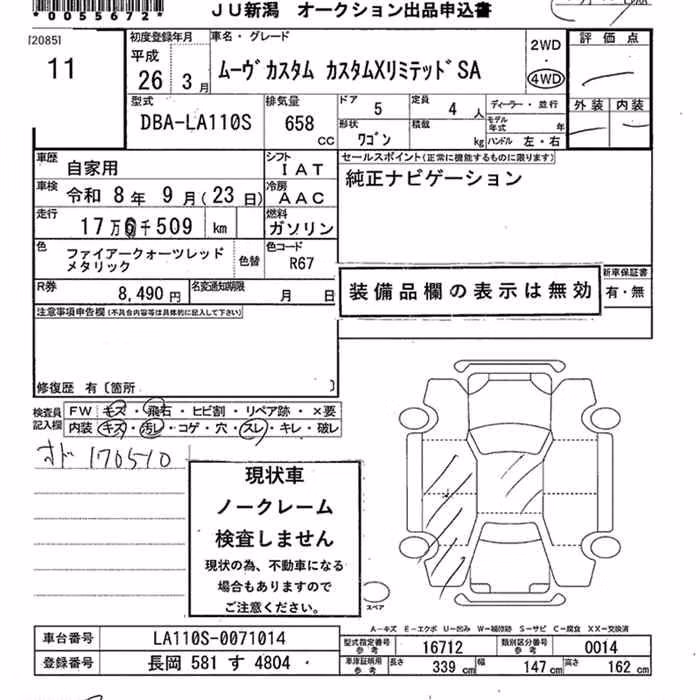 *0055672*
JU新潟 オークション出品申込書
[2085]
11
初度登録年月
平成
26 3月
車名・グレード
ムーヴカスタム カスタムXリミテッドSA
2WD
4WD
評価点
外装 内装
型式
DBA-LA110S
排気量
658 cc
ドア 5
定員 4人
形状 ワゴン
積載 kg
ディーラー・並行
モデル年式 年
ハンドル 左・右
車歴 自家用
シフト IAT
車検 令和 8年 9月(23日)
冷房 AAC
走行 17万 千509 km
燃料 ガソリン
色 ファイアークォーツレッド
メタリック
色替
色コード R67
R券 8,490円
名変通知期限 月 日
セールスポイント(正常に機能するものに限ります)
純正ナビゲーション
新車保証書
有・無
装備品欄の表示は無効
注意事項申告欄(不具合内容等は具体的に記入して下さい)
修復歴 有〔箇所 〕
検査員記入欄
FW キズ・飛石・ヒビ割・リペア跡・×要
内装 キズ・汚レ・コゲ・穴・スレ・キレ・破レ
オド 170510
現状車
ノークレーム
検査しません
現状の為、不動車になる
場合もありますので
ご注意ください。
スペア
A-キズ E-エクボ U-凹み W-補修跡 S-サビ C-腐食 XX-交換済
車台番号 LA110S-0071014
登録番号 長岡 581 す 4804
型式指定番号 参考 16712
類別区分番号 参考 0014
車庫証明用 参考 長さ 339cm 幅 147cm 高さ 162cm